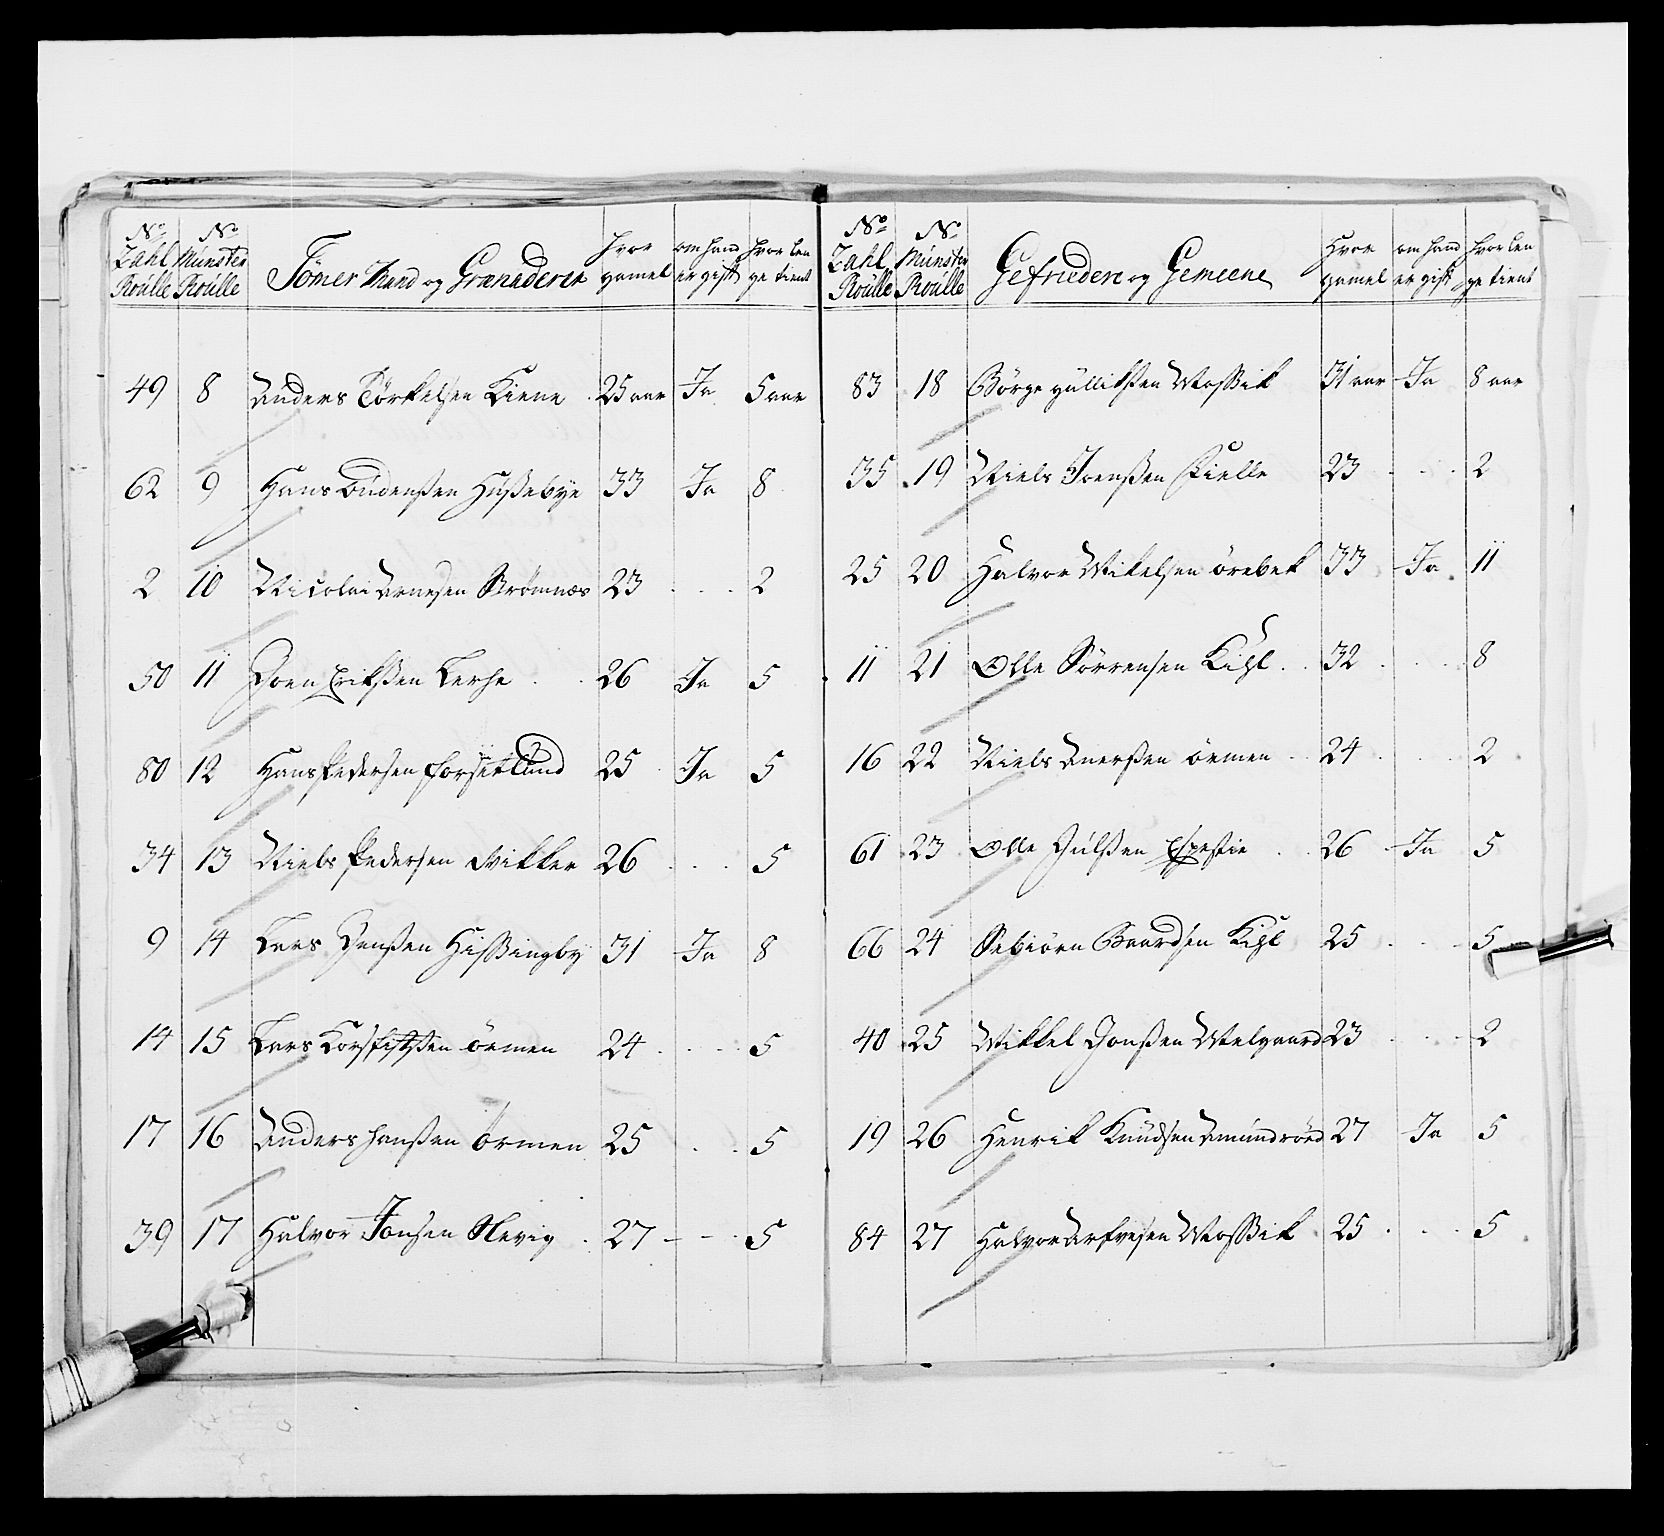 No Zahl Roulle | No Munster Roulle | Tömer Mand og Granaderer | hvor gamel | om hand er gift | hvor len ge tient
49 8 Anders Törkelsen Kiene 25 aar Ja 5 aar
62 9 Hans Oudenßen Hußebÿe 33 Ja 8
2 10 Nicolai Arnesen Strömnæs 23 . . . 2
50 11 Joen Erikßen Lerhe . . 26 Ja 5
80 12 Hans Pedersen Forsetlund 25 Ja 5
34 13 Niels Pedersen Vikker 26 . . . 5
9 14 Lars Jenßen Hißingby 31 Ja 8
14 15 Lars örmen 24 . . . 5
17 16 Anders Hanßen örmen 25 . . 5
39 17 Halvor Jonsen Nevig . 27 - - 5
No Zahl Roulle | No Munster Roulle | Gefriedere og Gemeene | Hvor gamel | om hand er gift | hvor len ge tient
83 18 Börge gullikßen Moßik 31 aar Ja 8 aar
35 19 Niels Joenßen Kielle 23 . . . 2
25 20 Halvor Mikelsen örebek 33 Ja 11
11 21 Olle Sörrensen . . 32 . . . 8
16 22 Niels Anerßen örmen . 24 . . . 2
61 23 Olle Julßen . 26 Ja 5
66 24 Sebiörn Baardsen 25 . . . 5
40 25 Mikkel Jonßen Melgaard 23 . . . 2
19 26 Henrik Knudsen Amundröd 27 Ja 5
84 27 Halvor Moßik . 25 . . . 5